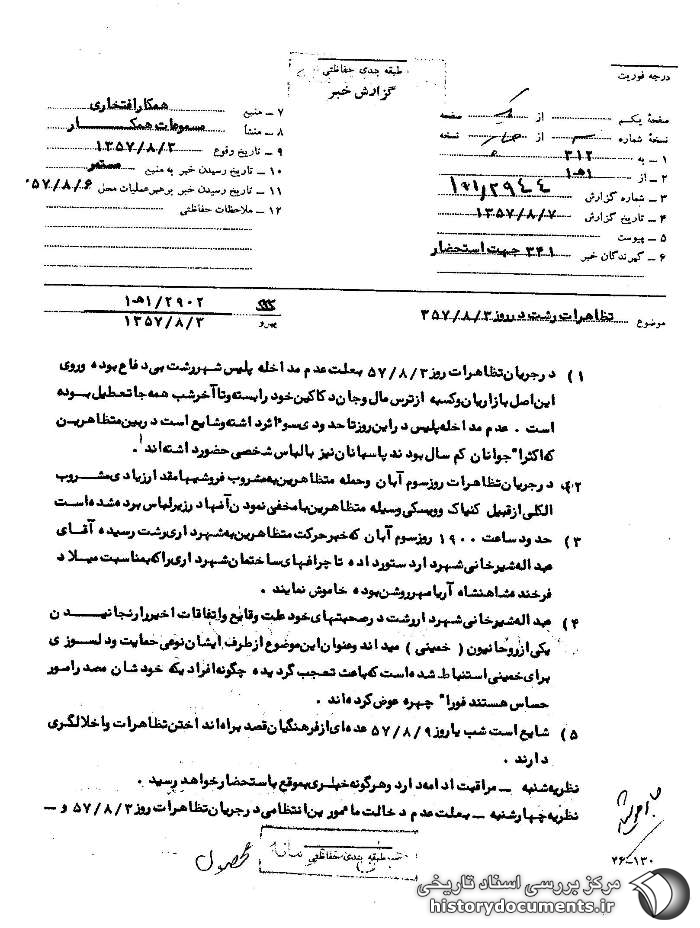 طبقه بندی حفاظتی
گزارش خبر
درجه فوریت
صفحهٔ یکم از صفحه
نسخهٔ شماره از نسخه
۱ – به ۳۱۲
۲ – از ۱ه‍۱
۳ – شماره گزارش ۱ه‍۱/۲۹۴۴
۴ – تاریخ گزارش ۱۳۵۷/۸/۷
۵ – پیوست
۶ – گیرندگان خبر ۳۴۱ جهت استحضار
۷ – منبع همکار افتخاری
۸ – منشأ مسموعات همکار
۹ – تاریخ وقوع ۱۳۵۷/۸/۳
۱۰ – تاریخ رسیدن خبر به منبع مستمر
۱۱ – تاریخ رسیدن خبر برهبر عملیات محل ۳۵۷/۸/۶
۱۲ – ملاحظات حفاظتی
موضوع تظاهرات رشت در روز ۳۵۷/۸/۳
۱ه‍۱/۲۹۰۲
پیرو ۱۳۵۷/۸/۳
۱) در جریان تظاهرات روز ۵۷/۸/۳ بعلت عدم مداخله پلیس شهر رشت بی دفاع بوده و روی
این اصل بازاریان و کسبه از ترس مال و جان دکاکین خود را بسته و تا آخر شب همه جا تعطیل بوده
است . عدم مداخله پلیس در این روز تا حدودی سوء اثر داشته و شایع است در بین متظاهرین
که اکثرا" جوانان کم سال بودند پاسبانان نیز با لباس شخصی حضور داشته اند .
۲) در جریان تظاهرات روز سوم آبان و حمله متظاهرین به مشروب فروشیها مقدار زیادی مشروب
الکلی از قبیل کنیاک و ویسکی وسیله متظاهرین با مخفی نمودن آنها در زیر لباس برده شده است
۳) حدود ساعت ۱۹۰۰ روز سوم آبان که خبر حرکت متظاهرین به شهرداری رشت رسیده آقای
عبداله شیرخانی شهردار دستور داده تا چراغهای ساختمان شهرداری را که بمناسبت میلاد
فرخنده شاهنشاه آریامهر روشن بوده خاموش نمایند .
۴) عبداله شیرخانی شهردار رشت در صحبتهای خود علت وقایع و اتفاقات اخیر را رنجانیدن
یکی از روحانیون ( خمینی ) میداند و عنوان این موضوع از طرف ایشان نوعی حمایت و دلسوزی
برای خمینی استنباط شده است که باعث تعجب گردیده چگونه افرادیکه خودشان مصدر امور
حساس هستند فورا" چهره عوض کرده اند .
۵) شایع است شب یا روز ۵۷/۸/۹ عده ای از فرهنگیان قصد براه انداختن تظاهرات و اخلالگری
دارند .
نظریه شنبه – مراقبت ادامه دارد و هرگونه خبری بموقع باستحضار خواهد رسید .
نظریه چهارشنبه – بعلت عدم دخالت مأمورین انتظامی در جریان تظاهرات روز ۵۷/۸/۳ و –
طبقه بندی حفاظتی
محصول
۲۶-۱۳۰
مرکز بررسی اسناد تاریخی
historydocuments.ir